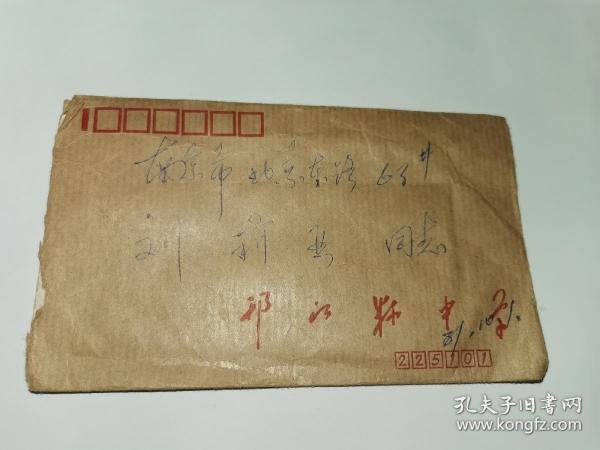 南京市北京东路63#
刘 同志
邗江县中学
225101
孔夫子旧书网
www.kongfz.com